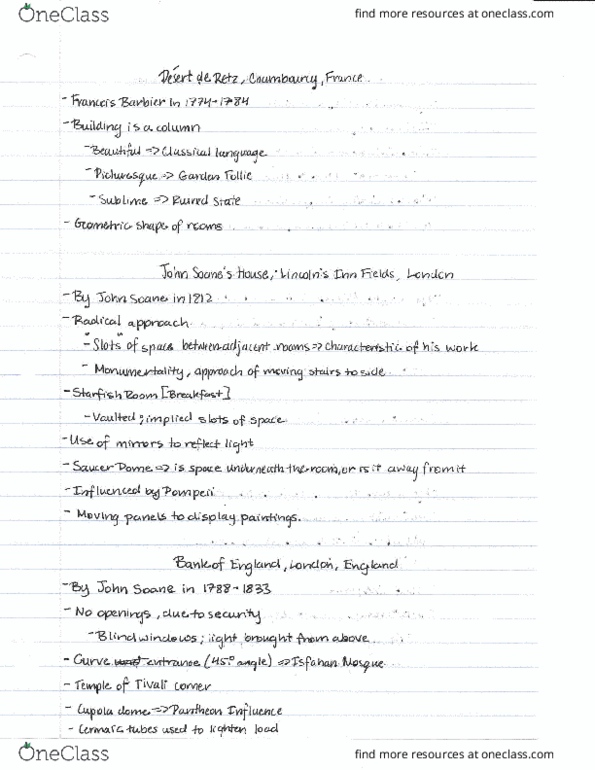 OneClass
find more resources at oneclass.com
Désert de Retz, Coumbourcy, France
- Francois Barbier in 1774-1784
- Building is a column
- Beautiful => Classical language
- Picturesque => Garden Follie
- Sublime => Ruined State
- Geometric shape of rooms
John Soane's House, Lincoln's Inn Fields, London
- By John Soane in 1812
- Radical approach
- "Slots" of space between adjacent rooms => characteristic of his work
- Monumentality, approach of moving stairs to side
- Starfish Room [Breakfast]
- Vaulted; implied slots of space
- Use of mirrors to reflect light
- Saucer Dome => is space underneath the room, or is it away from it
- Influenced by Pompeii
- Moving panels to display paintings.
Bank of England, London, England
- By John Soane in 1788-1833
- No openings, due to security
- Blind windows; light brought from above
- Curve entrance (45° angle) => Isfahan Mosque
- Temple of Tivali corner
- Cupola dome => Pantheon Influence
- Cermaic tubes used to lighten load
OneClass
find more resources at oneclass.com